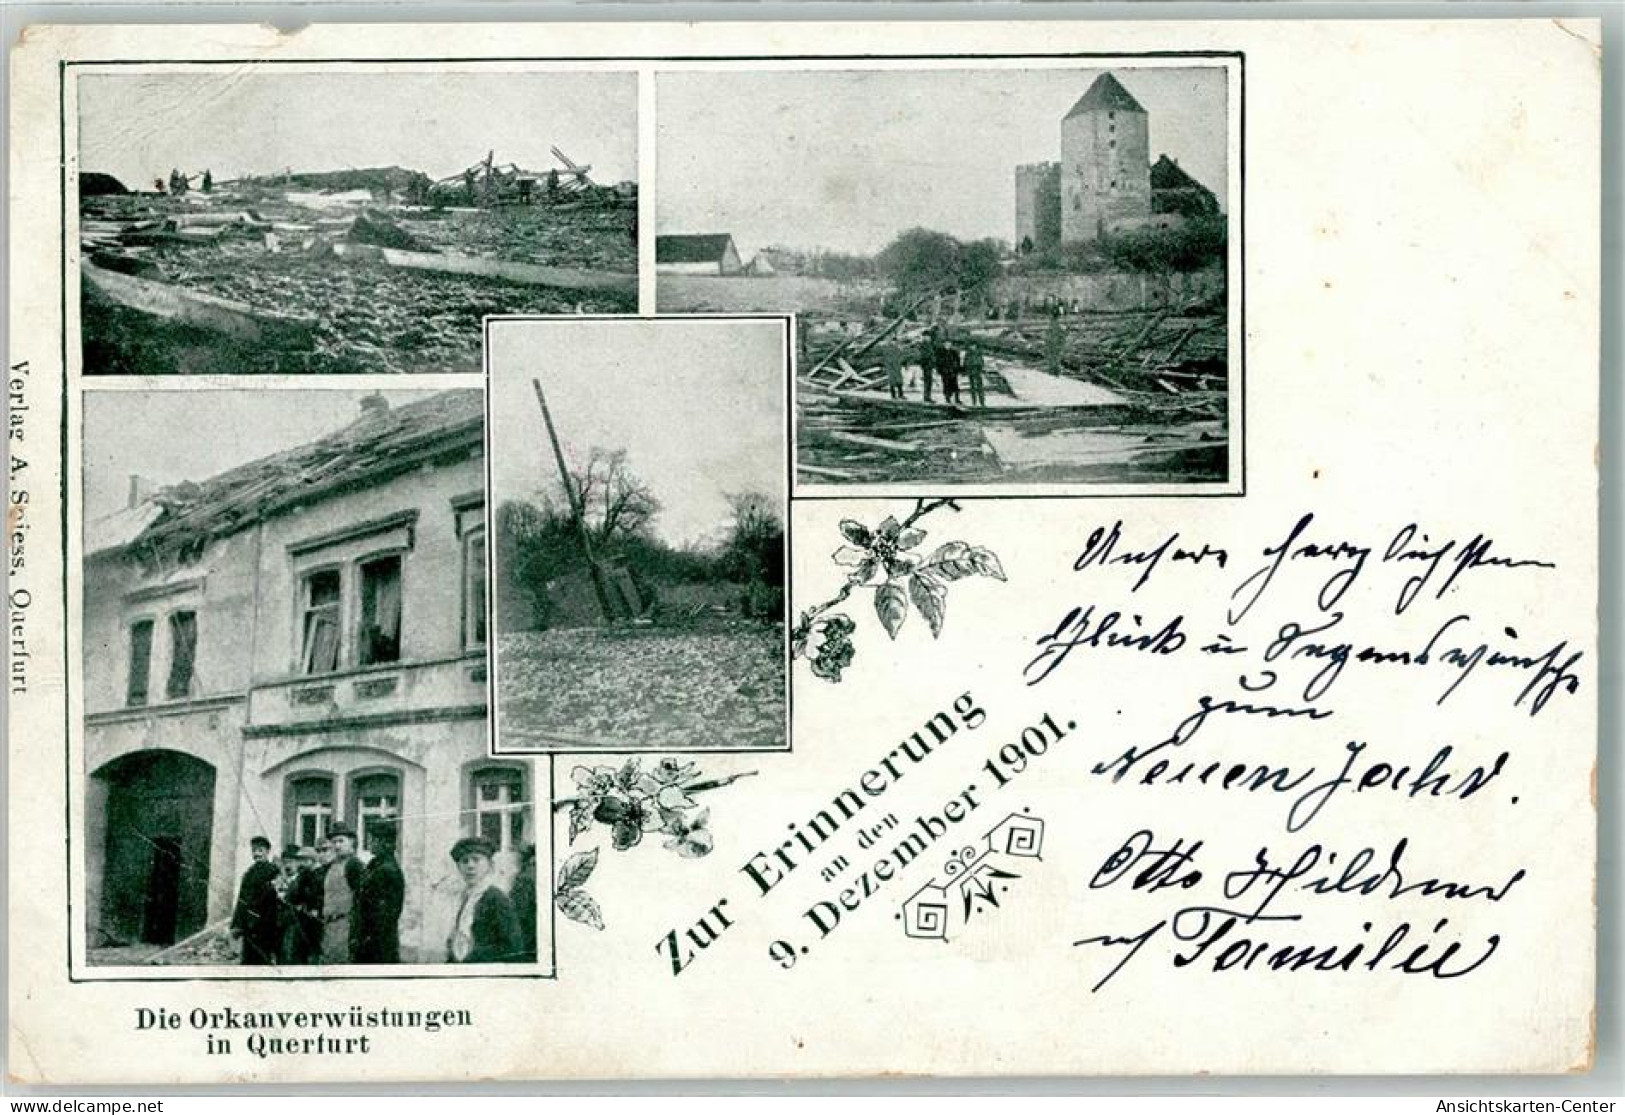 Verlag A. Spiess, Querfurt
Die Orkanverwüstungen
in Querfurt
Zur Erinnerung
an den
9. Dezember 1901.
Unsere herzlichsten
Glück u Segenswünsche
zum
Neuen Jahr.
Otto
u/ Familie
delcampe.net
Ansichtskarten-Center